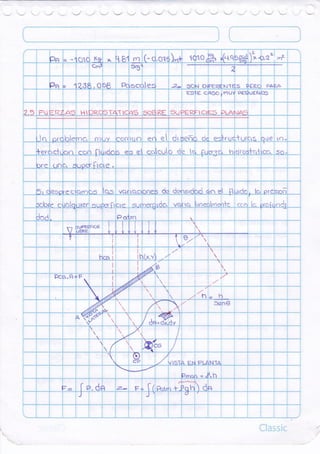 Pn = -1010 Kg/cm³ × 9.81 m/seg² (-0.015)m + 1010 Kg/cm³
2
Pn = 1238.056 Pascales ∴ SON DIFERENTES PERO PARA
ESTE CASO, MUY PEQUEÑOS
2.5 FUERZAS HIDROSTATICAS SOBRE SUPERFICIES PLANAS
Un problema muy comun en el diseño de estructuras que in-
teractuan con fluidos es el calculo de la fuerza hidrostatica so-
bre una superficie.
Si despreciamos las variaciones de densidad en el fluido, la presion
sobre cualquier superficie sumergida varia linealmente con la profundi
dad.
Patm
SUPERFICIE
LIBRE
θ
hCG
h(x,y)
B
PCG.A=F
A
n = h / Senθ
dA = dx.dy
CG
CP
VISTA EN PLANTA
Pman = ρgh
F = ∫ P.dA ∴ F = ∫(Patm + ρgh) dA
Classic